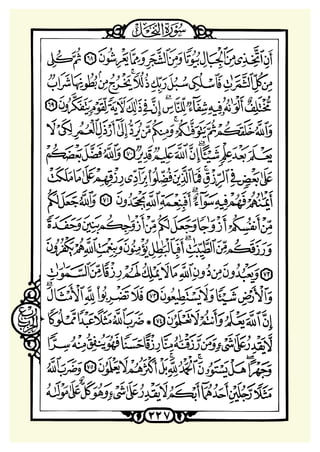 سُورَةُ النَّحْلِ
أَنِ ٱتَّخِذِى مِنَ ٱلْجِبَالِ بُيُوتًا وَمِنَ ٱلشَّجَرِ وَمِمَّا يَعْرِشُونَ ٦٨ ثُمَّ كُلِى
مِن كُلِّ ٱلثَّمَرَٰتِ فَٱسْلُكِى سُبُلَ رَبِّكِ ذُلُلًا يَخْرُجُ مِنۢ بُطُونِهَا شَرَابٌ
مُّخْتَلِفٌ أَلْوَٰنُهُۥ فِيهِ شِفَآءٌ لِّلنَّاسِ إِنَّ فِى ذَٰلِكَ لَءَايَةً لِّقَوْمٍ يَتَفَكَّرُونَ ٦٩
وَٱللَّهُ خَلَقَكُمْ ثُمَّ يَتَوَفَّىٰكُمْ وَمِنكُم مَّن يُرَدُّ إِلَىٰٓ أَرْذَلِ ٱلْعُمُرِ لِكَىْ لَا
يَعْلَمَ بَعْدَ عِلْمٍ شَيْـًٔا إِنَّ ٱللَّهَ عَلِيمٌ قَدِيرٌ ٧٠ وَٱللَّهُ فَضَّلَ بَعْضَكُمْ
عَلَىٰ بَعْضٍ فِى ٱلرِّزْقِ فَمَا ٱلَّذِينَ فُضِّلُوا۟ بِرَآدِّى رِزْقِهِمْ عَلَىٰ مَا مَلَكَتْ
أَيْمَٰنُهُمْ فَهُمْ فِيهِ سَوَآءٌ أَفَبِنِعْمَةِ ٱللَّهِ يَجْحَدُونَ ٧١ وَٱللَّهُ جَعَلَ لَكُم
مِّنْ أَنفُسِكُمْ أَزْوَٰجًا وَجَعَلَ لَكُم مِّنْ أَزْوَٰجِكُم بَنِينَ وَحَفَدَةً
وَرَزَقَكُم مِّنَ ٱلطَّيِّبَٰتِ أَفَبِٱلْبَٰطِلِ يُؤْمِنُونَ وَبِنِعْمَتِ ٱللَّهِ هُمْ يَكْفُرُونَ
٧٢ وَيَعْبُدُونَ مِن دُونِ ٱللَّهِ مَا لَا يَمْلِكُ لَهُمْ رِزْقًا مِّنَ ٱلسَّمَٰوَٰتِ
وَٱلْأَرْضِ شَيْـًٔا وَلَا يَسْتَطِيعُونَ ٧٣ فَلَا تَضْرِبُوا۟ لِلَّهِ ٱلْأَمْثَالَ
إِنَّ ٱللَّهَ يَعْلَمُ وَأَنتُمْ لَا تَعْلَمُونَ ٧٤ * ضَرَبَ ٱللَّهُ مَثَلًا عَبْدًا مَّمْلُوكًا
لَّا يَقْدِرُ عَلَىٰ شَىْءٍ وَمَن رَّزَقْنَٰهُ مِنَّا رِزْقًا حَسَنًا فَهُوَ يُنفِقُ مِنْهُ سِرًّا
وَجَهْرًا هَلْ يَسْتَوُۥنَ ٱلْحَمْدُ لِلَّهِ بَلْ أَكْثَرُهُمْ لَا يَعْلَمُونَ ٧٥ وَضَرَبَ ٱللَّهُ
مَثَلًا رَّجُلَيْنِ أَحَدُهُمَآ أَبْكَمُ لَا يَقْدِرُ عَلَىٰ شَىْءٍ وَهُوَ كَلٌّ عَلَىٰ مَوْلَىٰهُ
٢٢٧